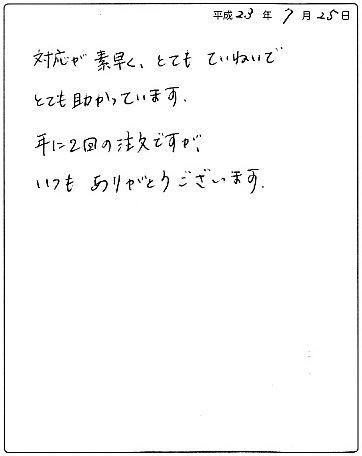 平成23年7月25日
対応が素早く、とても ていねいで
とても助かっています.
年に2回の注文ですが、
いつも ありがとうございます.